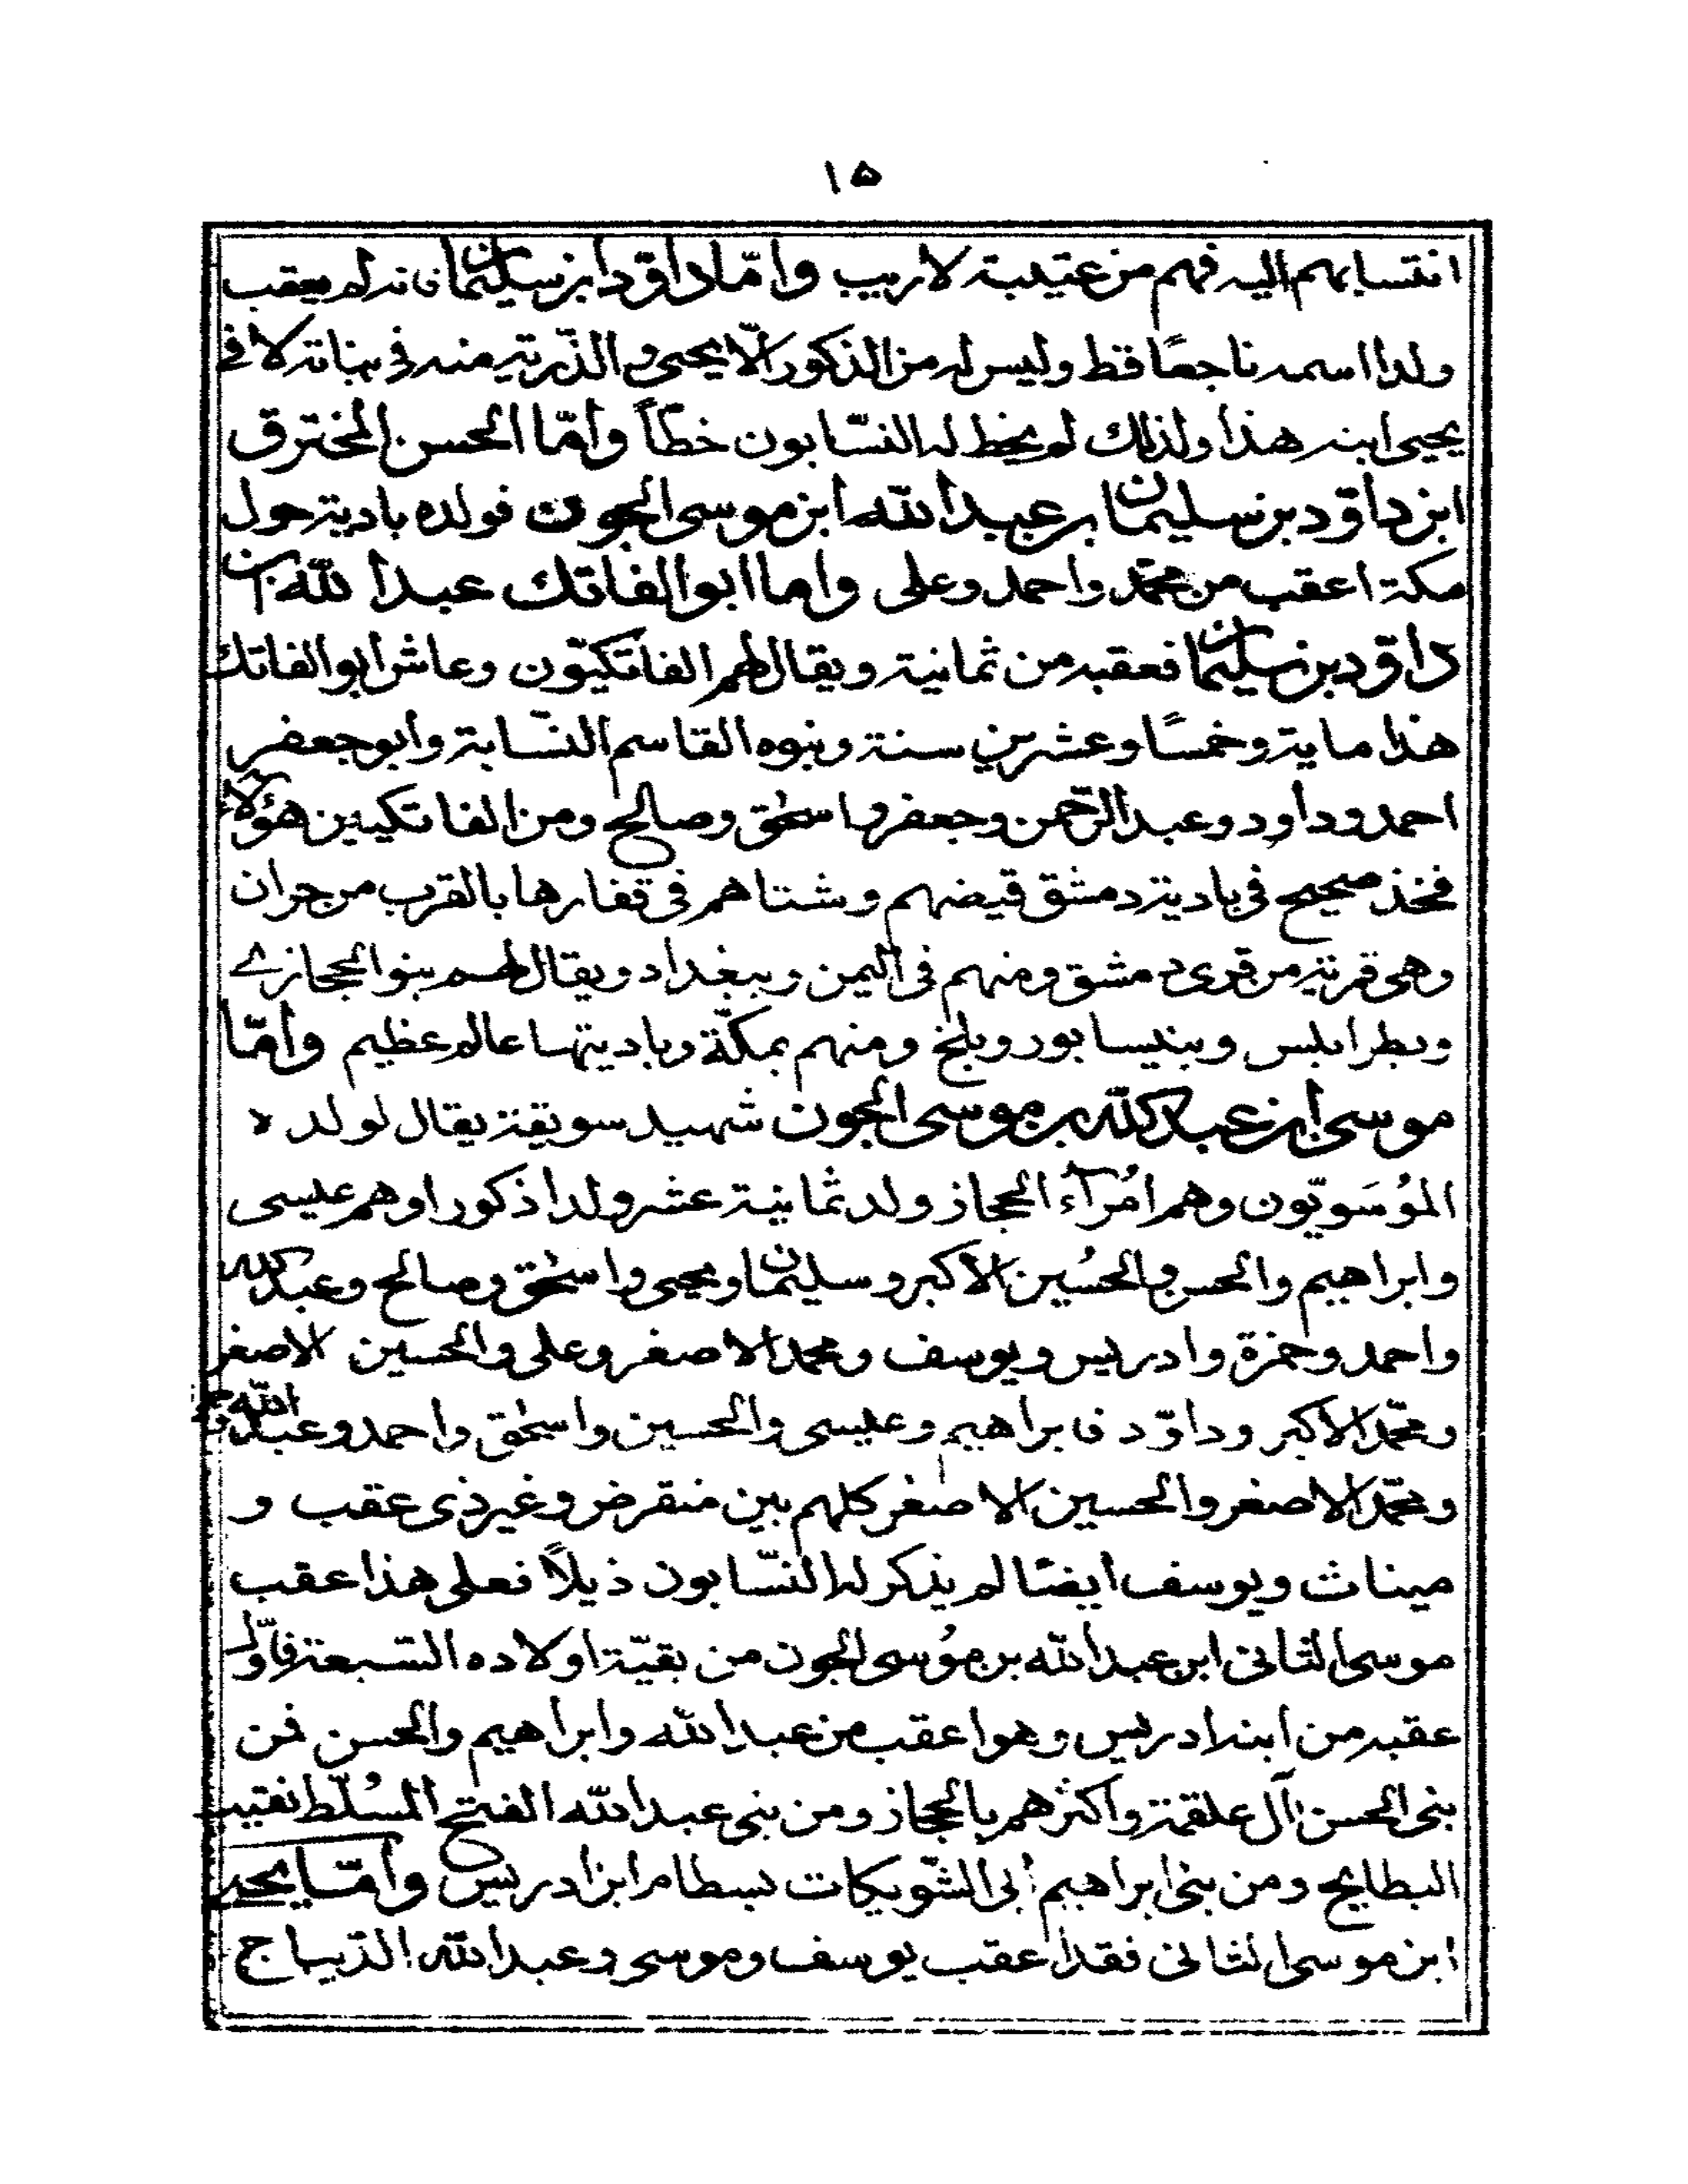 ١٥
انتسابهم اليه فهم من عتيبة لا ريب وامّا داوٗد ابن سليمان فانه لم يعقب
ولدا اسمه ناجعًا قط وليس له من الذكور الّا يحيى والذّرية منه في بناته لا في
يحيى ابنه هذا ولذلك لم يخط له النسّابون خطاً وامّا الحسن المخترق
ابن داوٗد بن سليمان بن عبد الله ابن موسى الجون فولده بادية حول
مكة اعقب من محمّد واحمد وعلى واما ابو الفاتك عبد الله ابن
داوٗد بن سليمان فعقبه من ثمانية ويقال لهم الفاتكيّون وعاش ابو الفاتك
هذا ماية وخمسًا وعشرين سنة وبنوه القاسم النسّابة وابو جعفر
احمد وداود وعبد الرّحمن وجعفر واسحٰق وصالح ومن الفاتكيين هؤلاء
فخذ صحيح فى بادية دمشق قيضهم وشتاهم فى قفارها بالقرب من جران
وهى قرية من قرى دمشق ومنهم فى اليمن وببغداد ويقال لهم بنو الحجازي
وبطرابلس وبنيسابور وبلخ ومنهم بمكّة وباديتها عالم عظيم وامّا
موسى ابن عبد الله بن موسى الجون شهيد سويقة يقال لولده
المُوسَويّون وهم امُرآء الحجاز ولد ثمانية عشر ولدا ذكورا وهم عيسى
وابراهيم والحسن والحسُين الاكبر وسليمان ويحيى واسحٰق وصالح وعبد الله
واحمد وحمزة وادريس ويوسف ومحمد الاصغر وعلى والحسين الاصغر
ومحمّد الاكبر وداوٗد فابراهيم وعيسى والحسين واسحٰق واحمد وعبد الله
ومحمّد الاصغر والحسين الاصغر كلهم بين منقرض وغير ذى عقب و
ميناث ويوسف ايضًا لم يذكر له النسّابون ذيلاً فعلى هذا عقب
موسى الثانى ابن عبد الله بن موُسى الجون من بقيّة اولاده السّبعة فاوّل
عقبه من ابنه ادريس وهو اعقب من عبد الله وابراهيم والحسن فمن
بنى الحسن آل علقمة واكثرهم بالحجاز ومن بنى عبد الله الفتح المسُلّط نقيب
البطايح ومن بنى ابراهيم ابى الشّويكات بسطام ابن ادريس وامّا يحيى
ابن موسى الثانى فقد اعقب يوسف وموسى وعبد الله الدّيباج